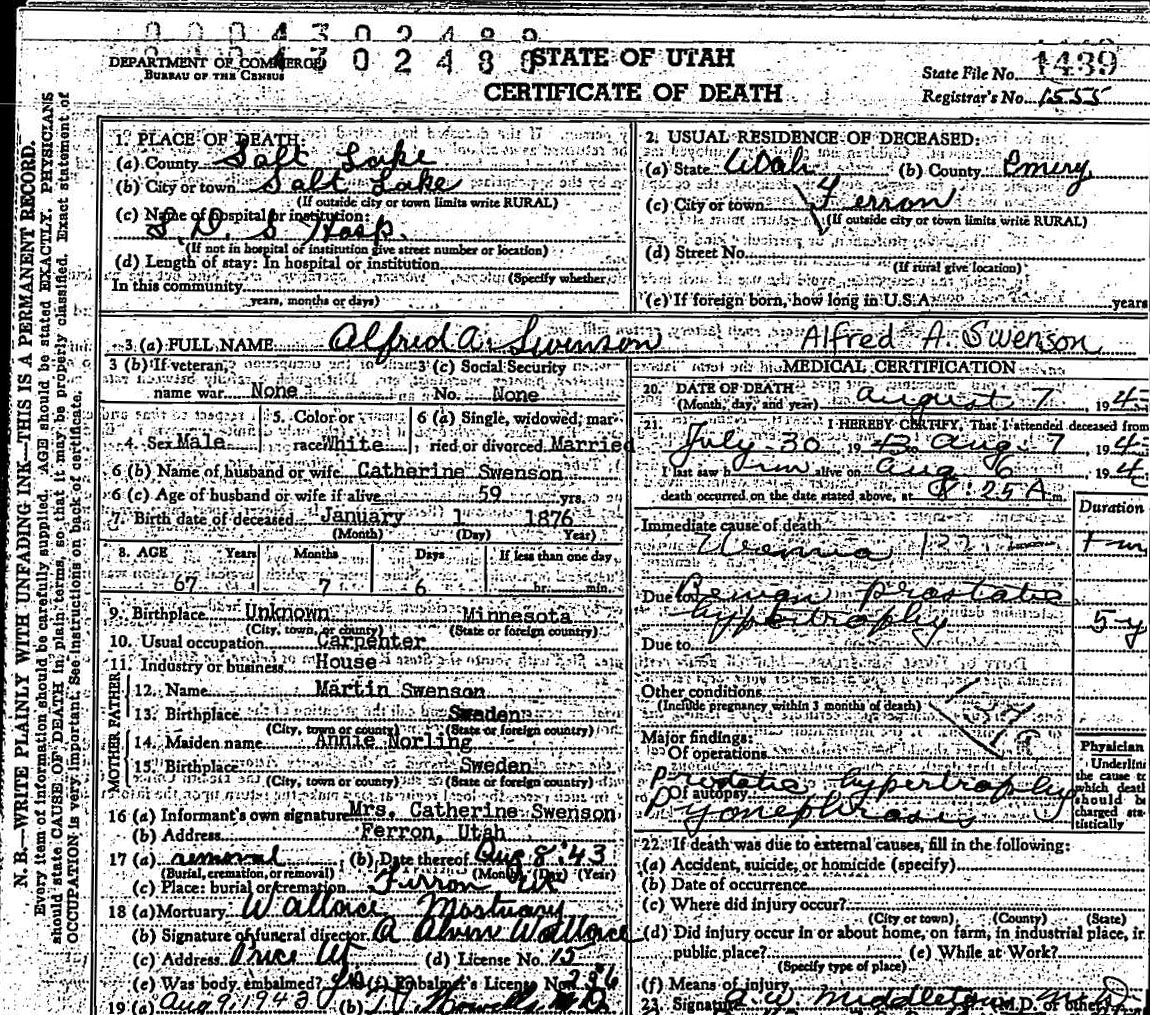 0004302489
DEPARTMENT OF COMMERCE
BUREAU OF THE CENSUS
STATE OF UTAH
CERTIFICATE OF DEATH
State File No. 1439
Registrar's No. 1555
N. B.—WRITE PLAINLY WITH UNFADING INK—THIS IS A PERMANENT RECORD.
Every item of information should be carefully supplied. AGE should be stated EXACTLY. PHYSICIANS
should state CAUSE OF DEATH in plain terms, so that it may be properly classified. Exact statement of
OCCUPATION is very important. See instructions on back of certificate.
1. PLACE OF DEATH
(a) County Salt Lake
(b) City or town Salt Lake
(If outside city or town limits write RURAL)
(c) Name of hospital or institution:
L. D. S Hosp.
(If not in hospital or institution give street number or location)
(d) Length of stay: In hospital or institution
(Specify whether
In this community
years, months or days)
2. USUAL RESIDENCE OF DECEASED:
(a) State Utah (b) County Emery
(c) City or town Ferron
(If outside city or town limits write RURAL)
(d) Street No.
(If rural give location)
(e) If foreign born, how long in U.S.A. years
3. (a) FULL NAME Alfred A. Swenson Alfred A. Swenson
3 (b) If veteran, name war None
3 (c) Social Security No. None
4. Sex Male
5. Color or race White
6 (a) Single, widowed, married or divorced Married
6 (b) Name of husband or wife Catherine Swenson
6 (c) Age of husband or wife if alive 59 yrs.
7. Birth date of deceased January 1 1876
(Month) (Day) Year)
8. AGE Years Months Days If less than one day
67 7 6 hr. min.
9. Birthplace Unknown Minnesota
(City, town, or county) (State or foreign country)
10. Usual occupation Carpenter
11. Industry or business House
FATHER
12. Name Martin Swenson
13. Birthplace Sweden
(City, town or county) (State or foreign country)
MOTHER
14. Maiden name Annie Norling
15. Birthplace Sweden
(City, town or county) (State or foreign country)
16 (a) Informant's own signature Mrs. Catherine Swenson
(b) Address Ferron, Utah
17 (a) removal (b) Date thereof Aug 8 '43
(Burial, cremation, or removal) (Month) (Day) (Year)
(c) Place: burial or cremation Ferron Ut
18 (a) Mortuary Wallace Mortuary
(b) Signature of funeral director A Alvin Wallace
(c) Address Price Ut (d) License No. 15
(e) Was body embalmed? yes (f) Embalmer's License No. 286
19 (a) Aug 9, 1943 (b)
MEDICAL CERTIFICATION
20. DATE OF DEATH
(Month, day, and year) August 7, 194
21. I HEREBY CERTIFY, That I attended deceased from
July 30 1943 to Aug 7 194
I last saw him alive on Aug 6 194
death occurred on the date stated above, at 8:25 A m.
Duration
Immediate cause of death
Uremia
Due to Benign Prostatic
hypertrophy 5 y
Due to
Other conditions
(Include pregnancy within 3 months of death)
Major findings:
Of operations
Prostatic hypertrophy
Of autopsy
Pyonephrosis
Physician
Underline
the cause to
which death
should be
charged sta-
tistically
22. If death was due to external causes, fill in the following:
(a) Accident, suicide, or homicide (specify)
(b) Date of occurrence
(c) Where did injury occur?
(City or town) (County) (State)
(d) Did injury occur in or about home, on farm, in industrial place, in
public place? (e) While at Work?
(Specify type of place)
(f) Means of injury
23. Signature Middleton M.D. or other